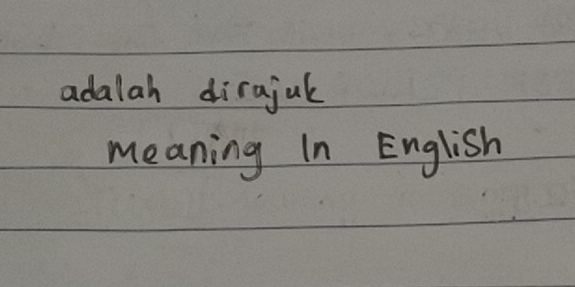 adalah dirajuk
meaning In English